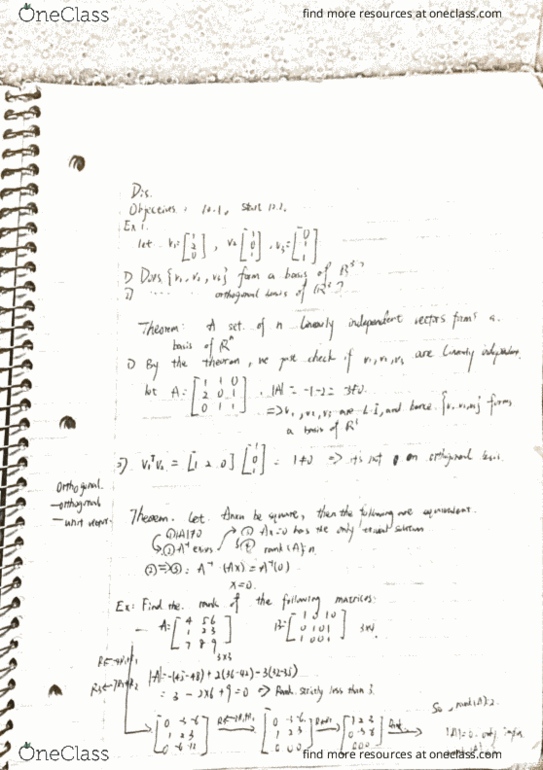 OneClass
find more resources at oneclass.com
Dis.
Objectives: 10.1, start 10.2.
Ex 1.
let v₁=[1 2 0], v₂=[1 0 1], v₃=[0 1 1]
1) Does {v₁, v₂, v₃} form a basis of R³?
2) ..... orthogonal basis of R³?
Theorem: A set of n linearly independent vectors forms a
basis of Rⁿ
1) By the theorem, we just check if v₁, v₂, v₃ are linearly independent.
let A=[1 1 0; 2 0 1; 0 1 1]. |A| = -1-2 = -3≠0.
=> v₁, v₂, v₃ are L.I, and hence {v₁, v₂, v₃} forms
a basis of R³
2) v₁ᵀv₂ = [1 2 0][1 0 1] = 1≠0 => it's not an orthogonal basis.
Orthogonal
- orthogonal
- unit vector
Theorem. Let be square, then the following are equivalent.
① |A|≠0 ③ Ax=0 has the only trivial solution
② A⁻¹ exists ④ rank(A)=n
②=>③: A⁻¹(Ax)=A⁻¹(0)
x=0.
Ex: Find the rank of the following matrices:
A=[4 5 6; 1 2 3; 7 8 9] 3x3
B=[1 0 1 0; 0 1 0 1; 1 0 0 1] 3x4
= 3 - 2x6 + 9 = 0 => Rank strictly less than 3.
So, rank(A)=2
[0 -3 -6; 1 2 3; 0 -6 -12] [0 -3 -6; 1 2 3; 0 0 0] [1 2 3; 0 -3 -6; 0 0 0]
|A|=0. only
OneClass
find more resources at oneclass.com